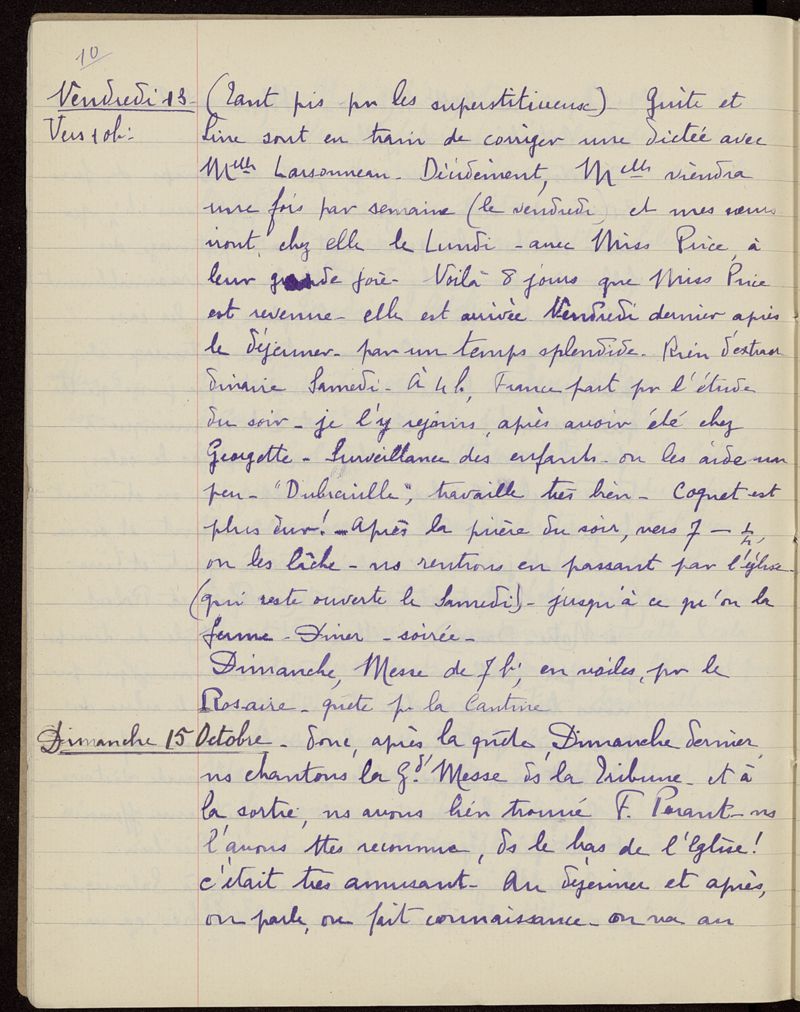 10
Vendredi 13 - (Tant pis pr les superstitieuses) Guite et
Vers 10h - Line sont en train de corriger une dictée avec
Melle Larsonneau - Décidément, Melle viendra
une fois par semaine (le vendredi) et mes sœurs
iront chez elle le Lundi - avec Miss Price, à
leur grande joie - Voilà 8 jours que Miss Price
est revenue - elle est arrivée Vendredi dernier après
le déjeuner - par un temps splendide. Rien d'extraor
dinaire Samedi - À 4h, France part pr l'étude
du soir - je l'y rejoins, après avoir été chez
Georgette - Surveillance des enfants - on les aide un
peu - "Dubraille", travaille très bien - Coquet est
plus dur! - Après la prière du soir, vers 7 - 1/2,
on les lâche - ns rentrons en passant par l'église -
(qui reste ouverte le Samedi) - jusqu'à ce qu'on la
ferme - Diner - soirée -
Dimanche, Messe de 7h, en voiles, pr le
Rosaire - quête pr la Cantine
Dimanche 15 Octobre - donc, après la quête, Dimanche dernier,
ns chantons la Gd' Messe ds la Tribune - et à
la sortie, ns avons bien trouvé F. Parant - ns
l'avons ttes reconnue, ds le bas de l'Eglise!
c'était très amusant - Au déjeuner et après,
on parle, on fait connaissance - on va au